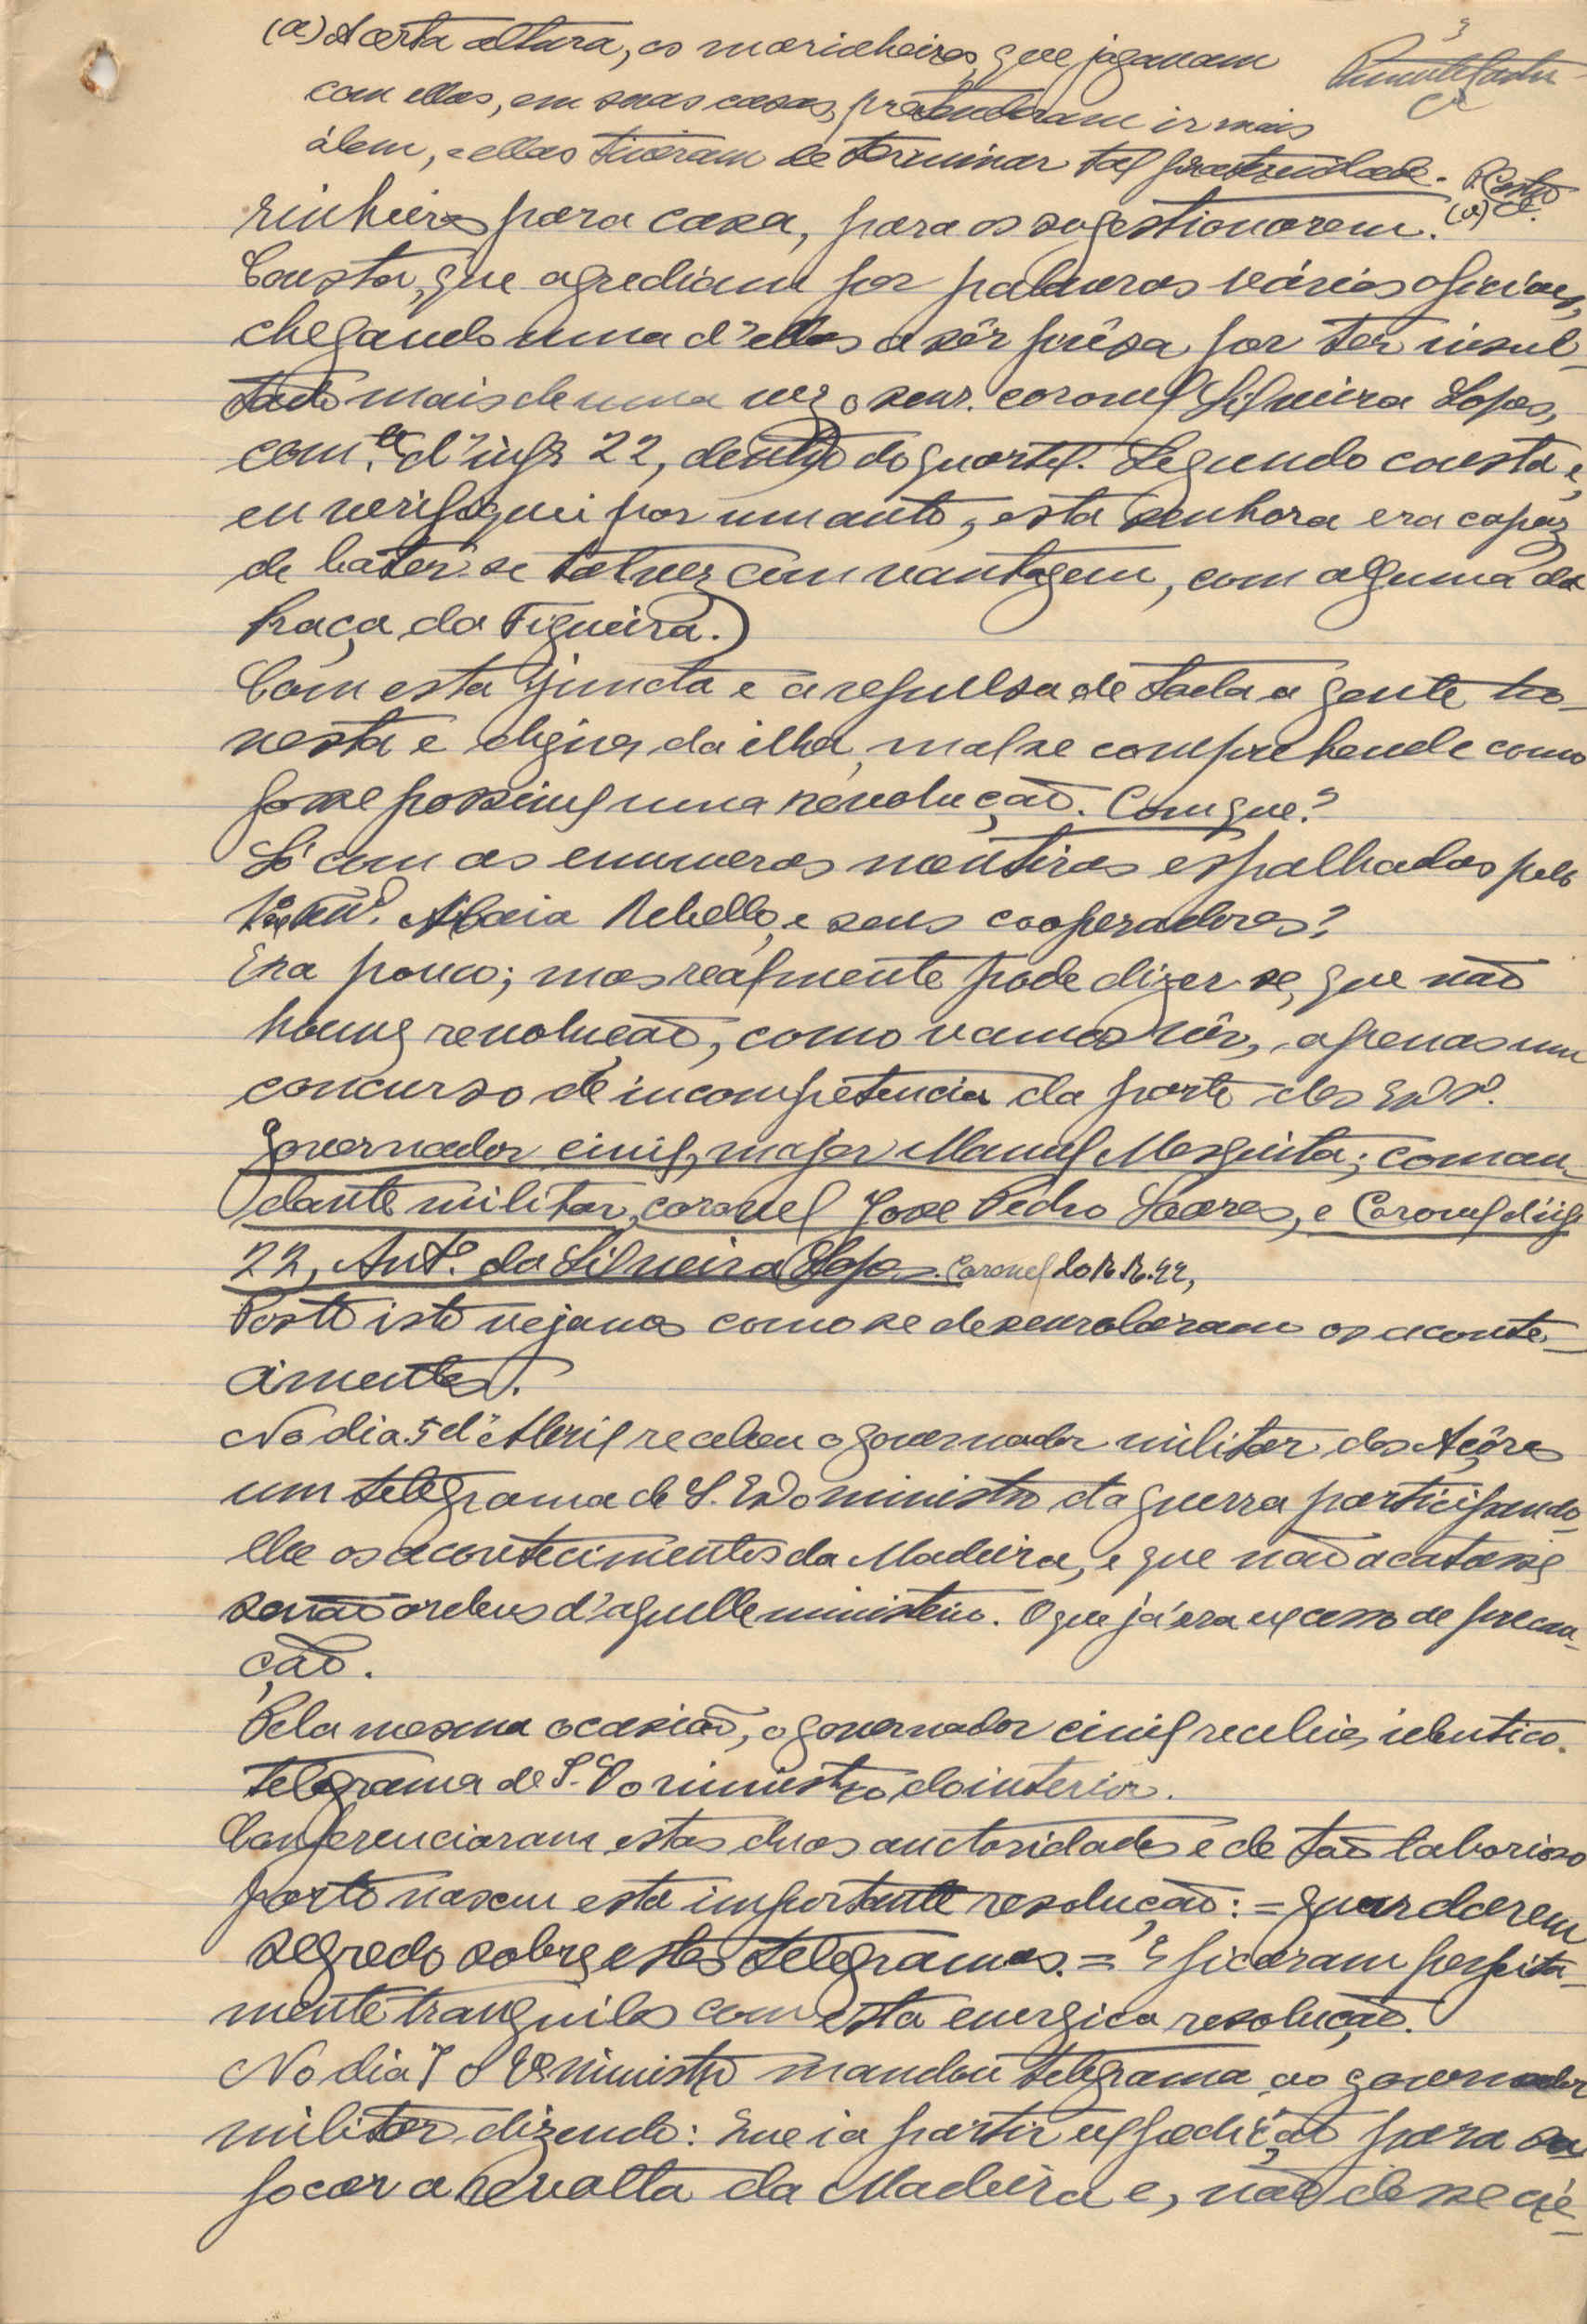 3
(a) A certa altura, os marinheiros, que jogavam
com ellas, em suas casas, pretenderam ir mais
álem, e ellas tiveram de terminar tal fraternidade.
rinheiros para casa, para os sugestionarem. (a)
Consta, que agrediam por palavras vários oficiaes,
chegando uma d'ellas a sêr prêsa por ter insul-
tado mais de uma vez o snr. coronel Silveira Lopes,
com.te d'inf.a 22, dentro do quartel. Segundo consta e,
eu verifiquei por um auto, esta senhora era capaz
de bater-se talvez com vantagem, com alguma da
Praça da Figueira.)
Com esta Juncta e a repulsa de toda a gente ho-
nesta e digna da ilha, mal se comprehende como
fosse possivel uma revolução. Com que?
Só com as inumeras mentiras espalhadas pelo
Maia Rebello, e seus cooperadores?
Era pouco; mas realmente pode dizer-se, que não
houve revolução, como vamos vêr, apenas um
concurso de incompetencia da parte dos
governador civil, major Manuel Mesquita; coman-
dante militar, coronel José Pedro Soares, e Coronel d'inf.a
22, Ant.o da Silveira Lopes. Coronel do R. R. 22,
Posto isto vejamos como se desenrolaram os aconte-
cimentos.
No dia 5 d'Abril recebeu o governador militar dos Açôres
um telegrama de S. Exª o ministro da guerra participando-
lhe os acontecimentos da Madeira, e que não acatasse
senão ordens d'aquelle ministerio. O que já era excesso de precau-
ção.
Pela mesma ocasião, o governador civil recebia identico
telegrama de S. Exª o ministro do interior.
Conferenciaram estas duas auctoridades e de tão laborioso
parto nasceu esta importante resolução: = guardarem
segredo sobre estes telegramas. = E ficaram perfeita-
mente tranquilos com esta energica resolução.
No dia 7 o Exº Ministro mandou telegrama ao governador
militar dizendo: Que ia partir expedição para su-
focar a revolta da Madeira e, não desse cré-